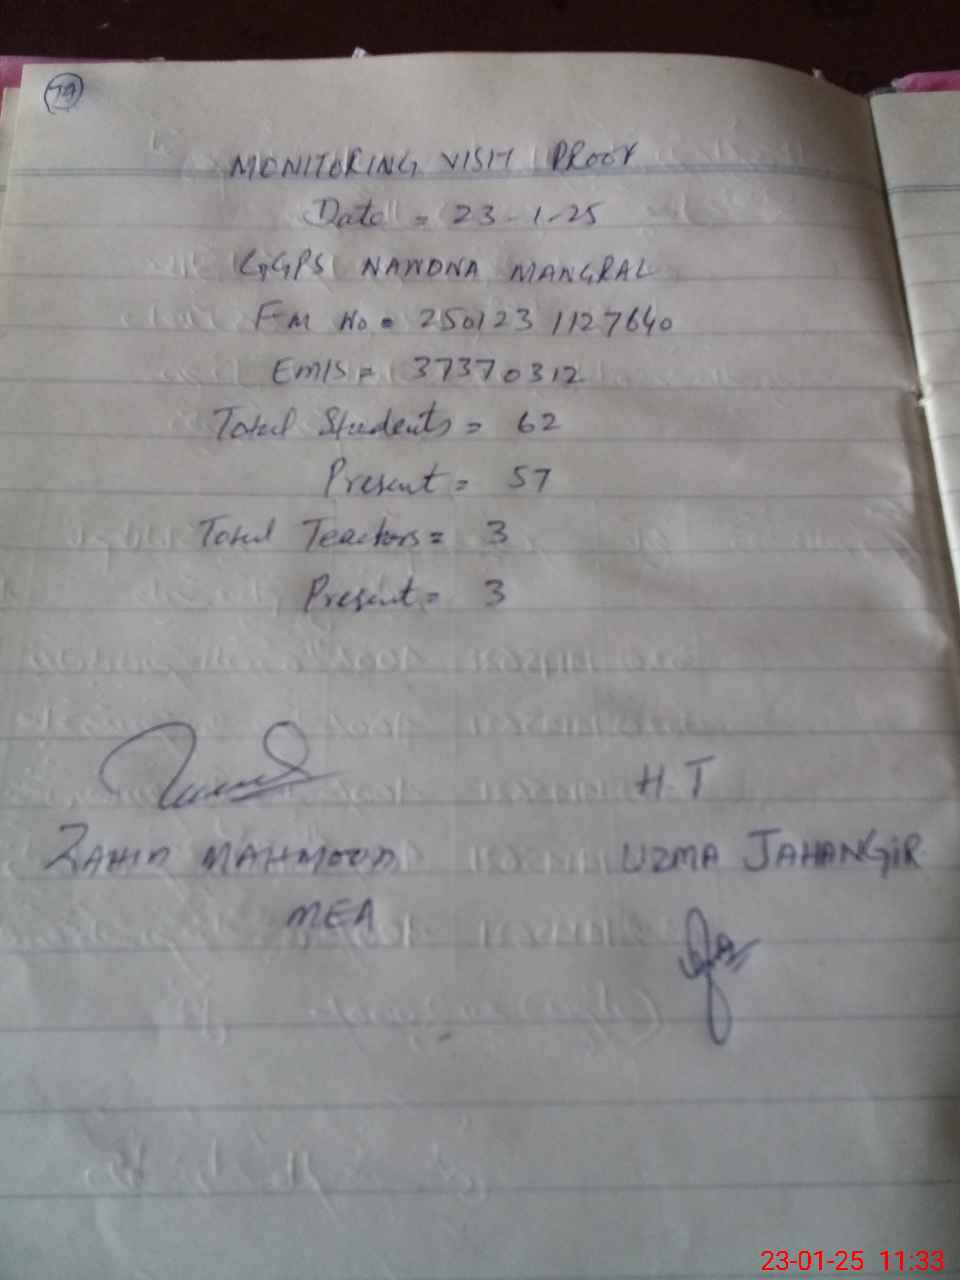 79
MONITORING VISIT PROOF
Date = 23-1-25
GGPS NAWDNA MANGRAL
FM No = 250123 1127640
EMIS = 37370312
Total Students = 62
Present = 57
Total Teachers = 3
Present = 3
H.T
ZAHID MAHMOOD UZMA JAHANGIR
MEA
23-01-25 11:33